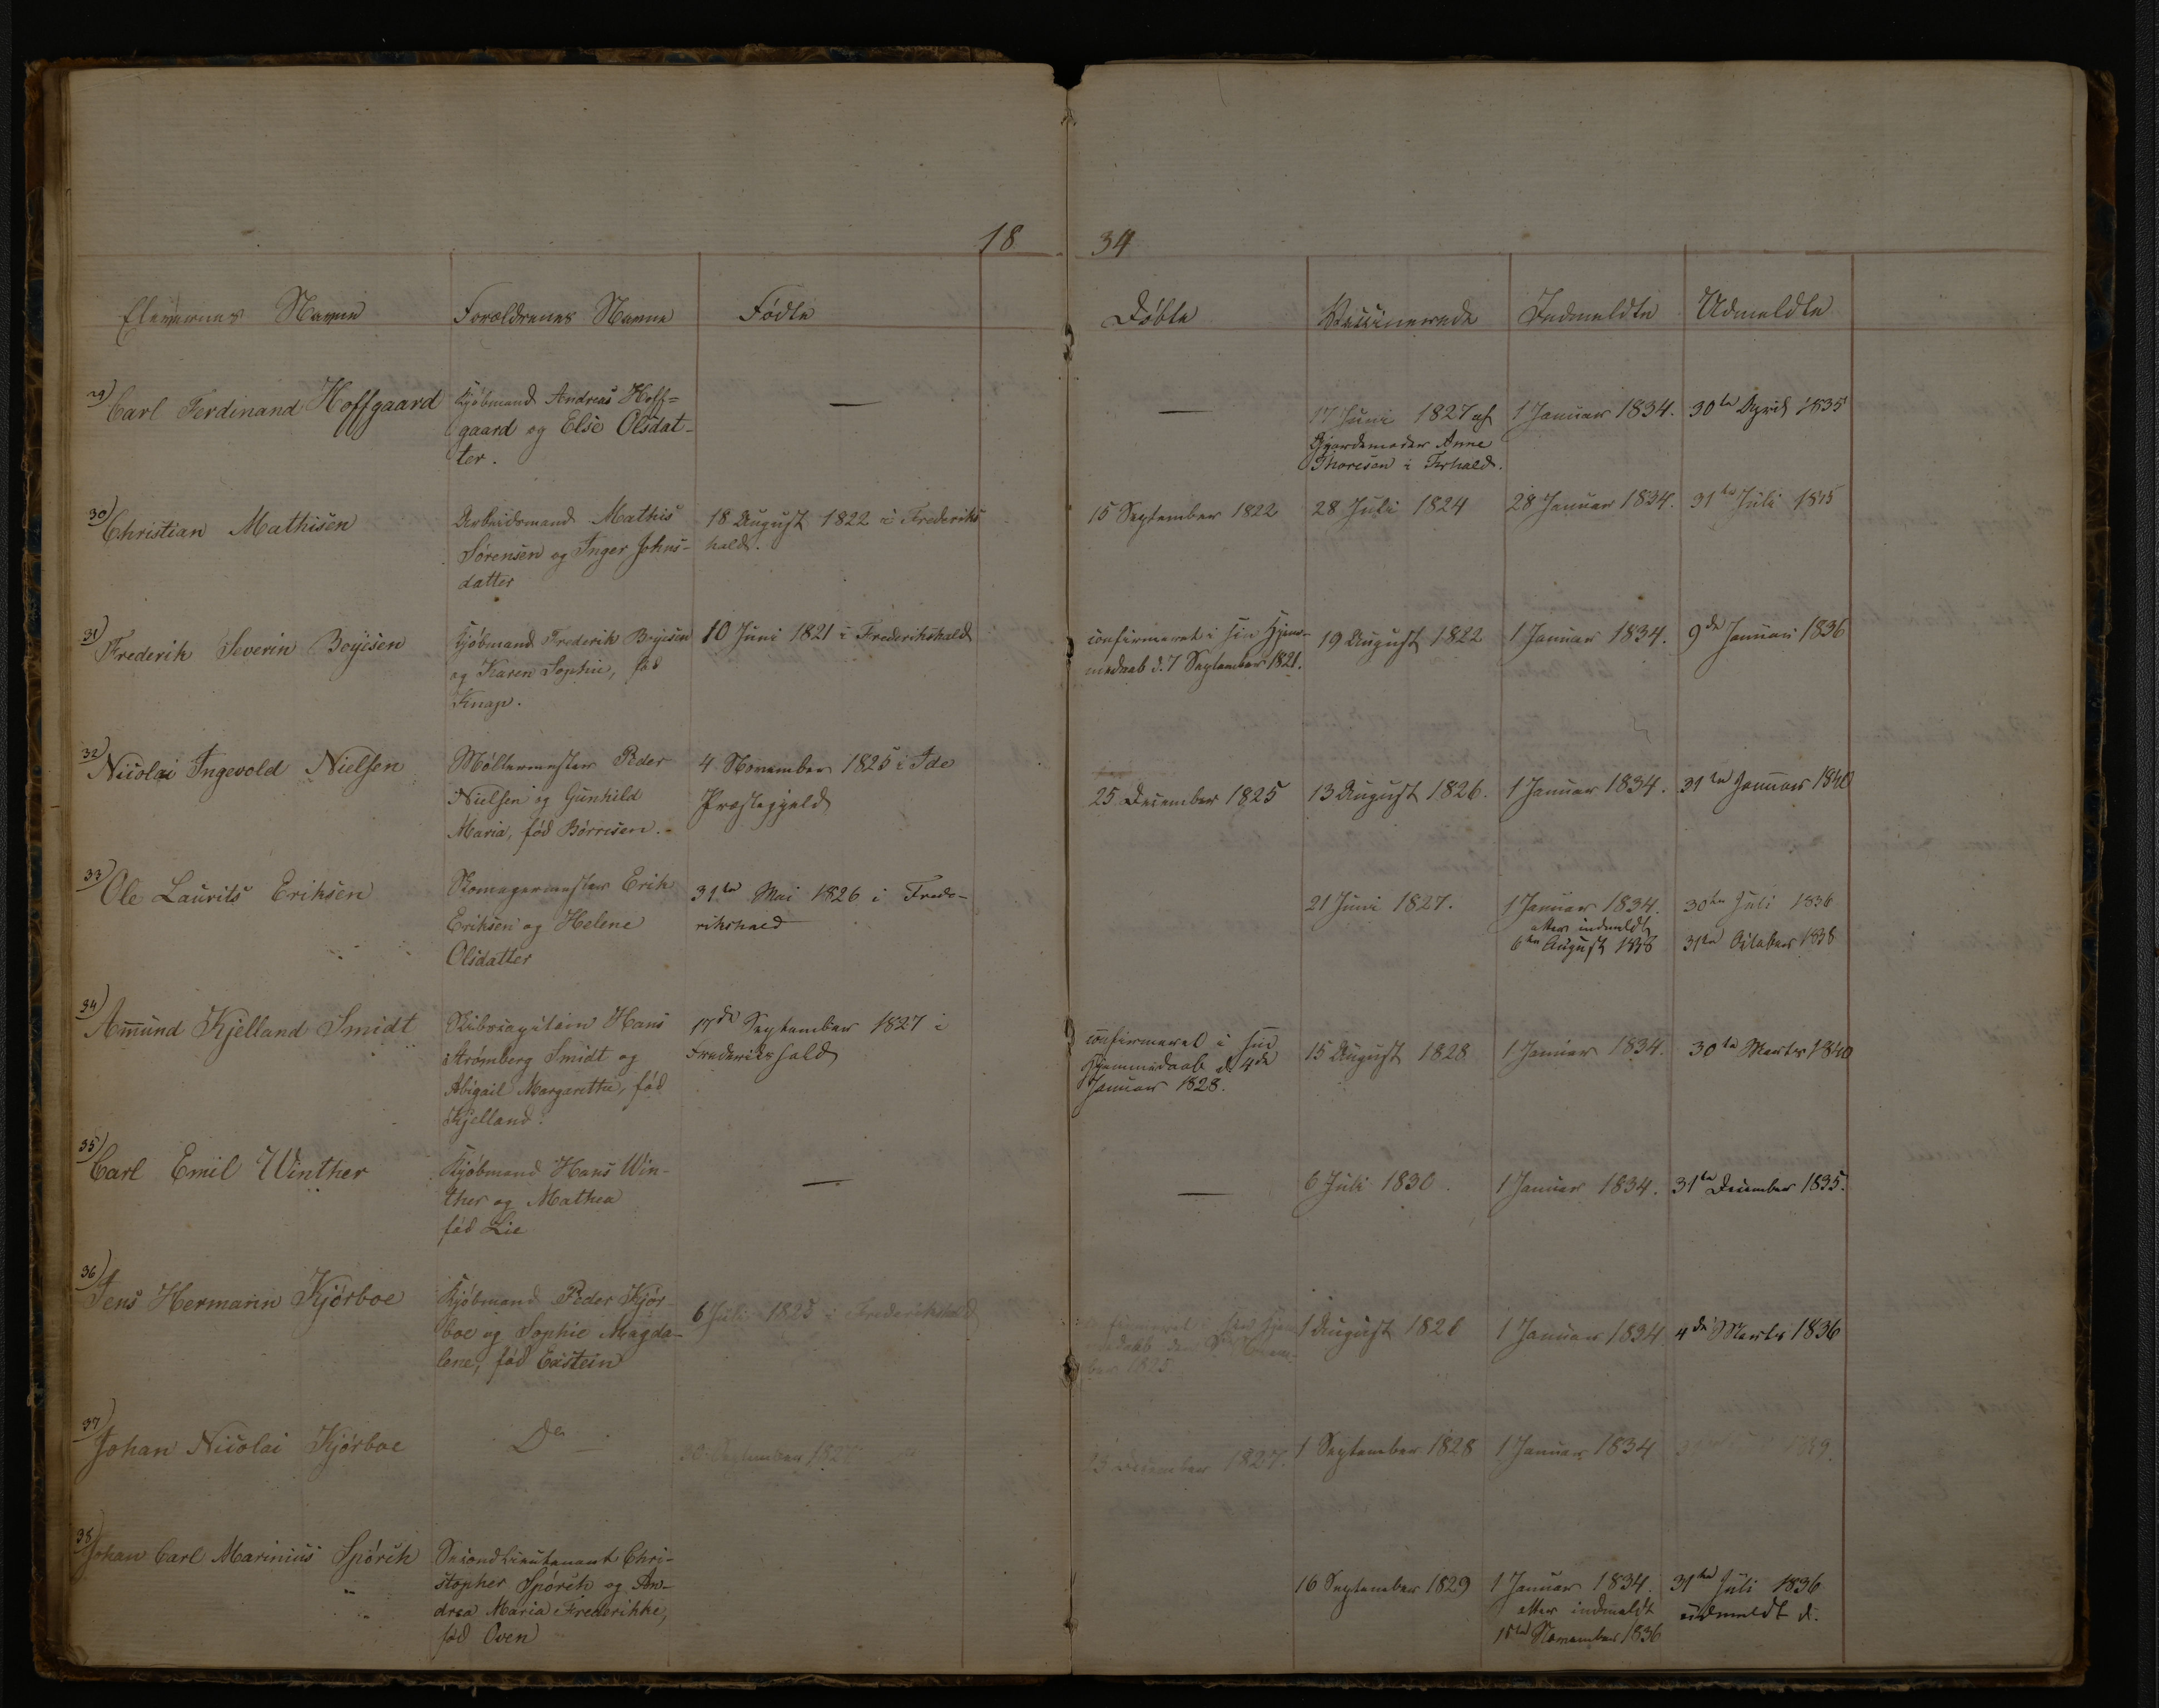 18 34
Elevernes Navne Forældrenes Navne Fødte Døbte Vaccinerede Indmeldte Udmeldte
29) Carl Ferdinand Hoffgaard
Kjøbmand Andreas Hoff=
gaard og Else Olsdat-
ter.
—
—
17 Juni 1827 af
Gjordemoder Anne
Thoresen i Frhald.
1 Januar 1834.
30te April 1835
30) Christian Mathisen
Arbeidsmand Mathis
Sørensen og Inger Johns-
datter
18 August 1822 i Frederiks
hald.
15 September 1822
28 Juli 1824
28 Januar 1834.
31te Juli 1835
31) Frederik Severin Boyesen
Kjøbmand Frederik Boyesen
og Karen Sophie, fød
Knap.
10 Juni 1821 i Frederikshald
confirmeret i sin Hjem-
medaab d. 7 September 1821.
19 August 1822
1 Januar 1834.
9de Januari 1836
32) Nicolai Ingevold Nielsen
Møllermester Peder
Nielsen og Gunhild
Maria, fød Børresen.
4 November 1825 i Ide
Præstegjeld
25 December 1825
13 August 1826.
1 Januar 1834.
31te Januar 1840
33) Ole Laurits Eriksen
Skomagermester Erik
Eriksen og Helene
Olsdatter
31te Mai 1826 i Frede-
rikshald
21 Juni 1827.
1 Januar 1834.
atter indmeldt
6te August 1838
30te Juli 1836
31te October 1838
34) Amund Kjelland Smidt
Skibscapitain Hans
Strømberg Smidt og
Abigail Margarethe, fød
Kjelland.
17de September 1827 i
Frederikshald
confirmeret i sin
Hjemmedaab d. 4de
Januar 1828.
15 August 1828
1 Januar 1834.
30te Marts 1840
35) Carl Emil Winther
Kjøbmand Hans Win-
ther og Mathea
fød Lie
—
—
6 Juli 1830.
1 Januar 1834.
31te December 1835.
36) Jens Hermann Kjørboe
Kjøbmand Peder Kjør-
boe og Sophie Magda-
lene, fød Eestein
6 Juli 1825 i Frederikshald
confirmeret i sin Hjem
medaab den Novem-
ber 1825
1 August 1828
1 Januar 1834.
4de Marts 1836
37) Johan Nicolai Kjørboe
Do
30 September 182
13 December 1827.
1 September 1828
1 Januar 1834
38) Johan Carl Marinius Spørck
Secondlieutenant Chri-
stopher Spørck og An-
drea Maria Frederikke,
fød Oven
16 September 1829
1 Januar 1834.
atter indmeldt
15de November 1836
31te Juli 1836
udmeldt d.